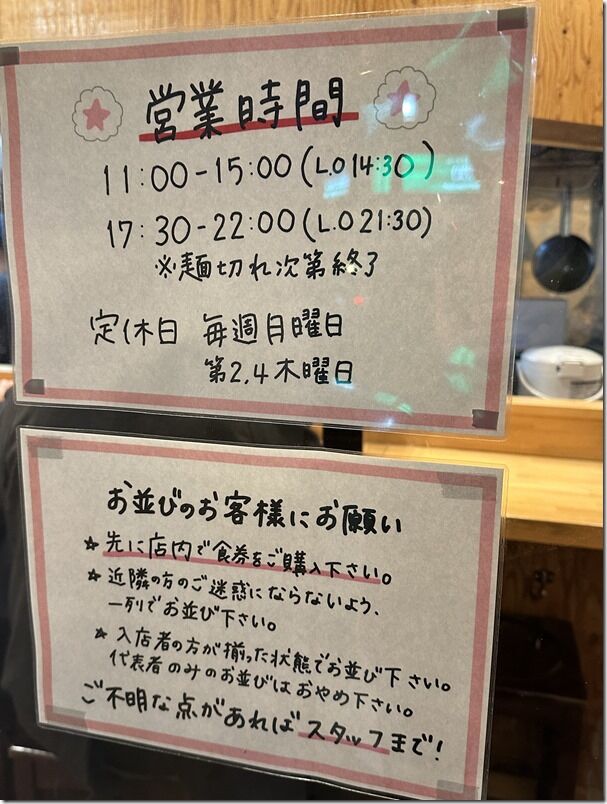 営業時間
11:00-15:00(L.O 14:30)
17:30-22:00(L.O 21:30)
※麺切れ次第終了
定休日 毎週月曜日
第2,4木曜日
お並びのお客様にお願い
☆ 先に店内で食券をご購入下さい。
☆ 近隣の方のご迷惑にならないよう、
一列でお並び下さい。
☆ 入店者の方が揃った状態でお並び下さい。
代表者のみのお並びはおやめ下さい。
ご不明な点があればスタッフまで!